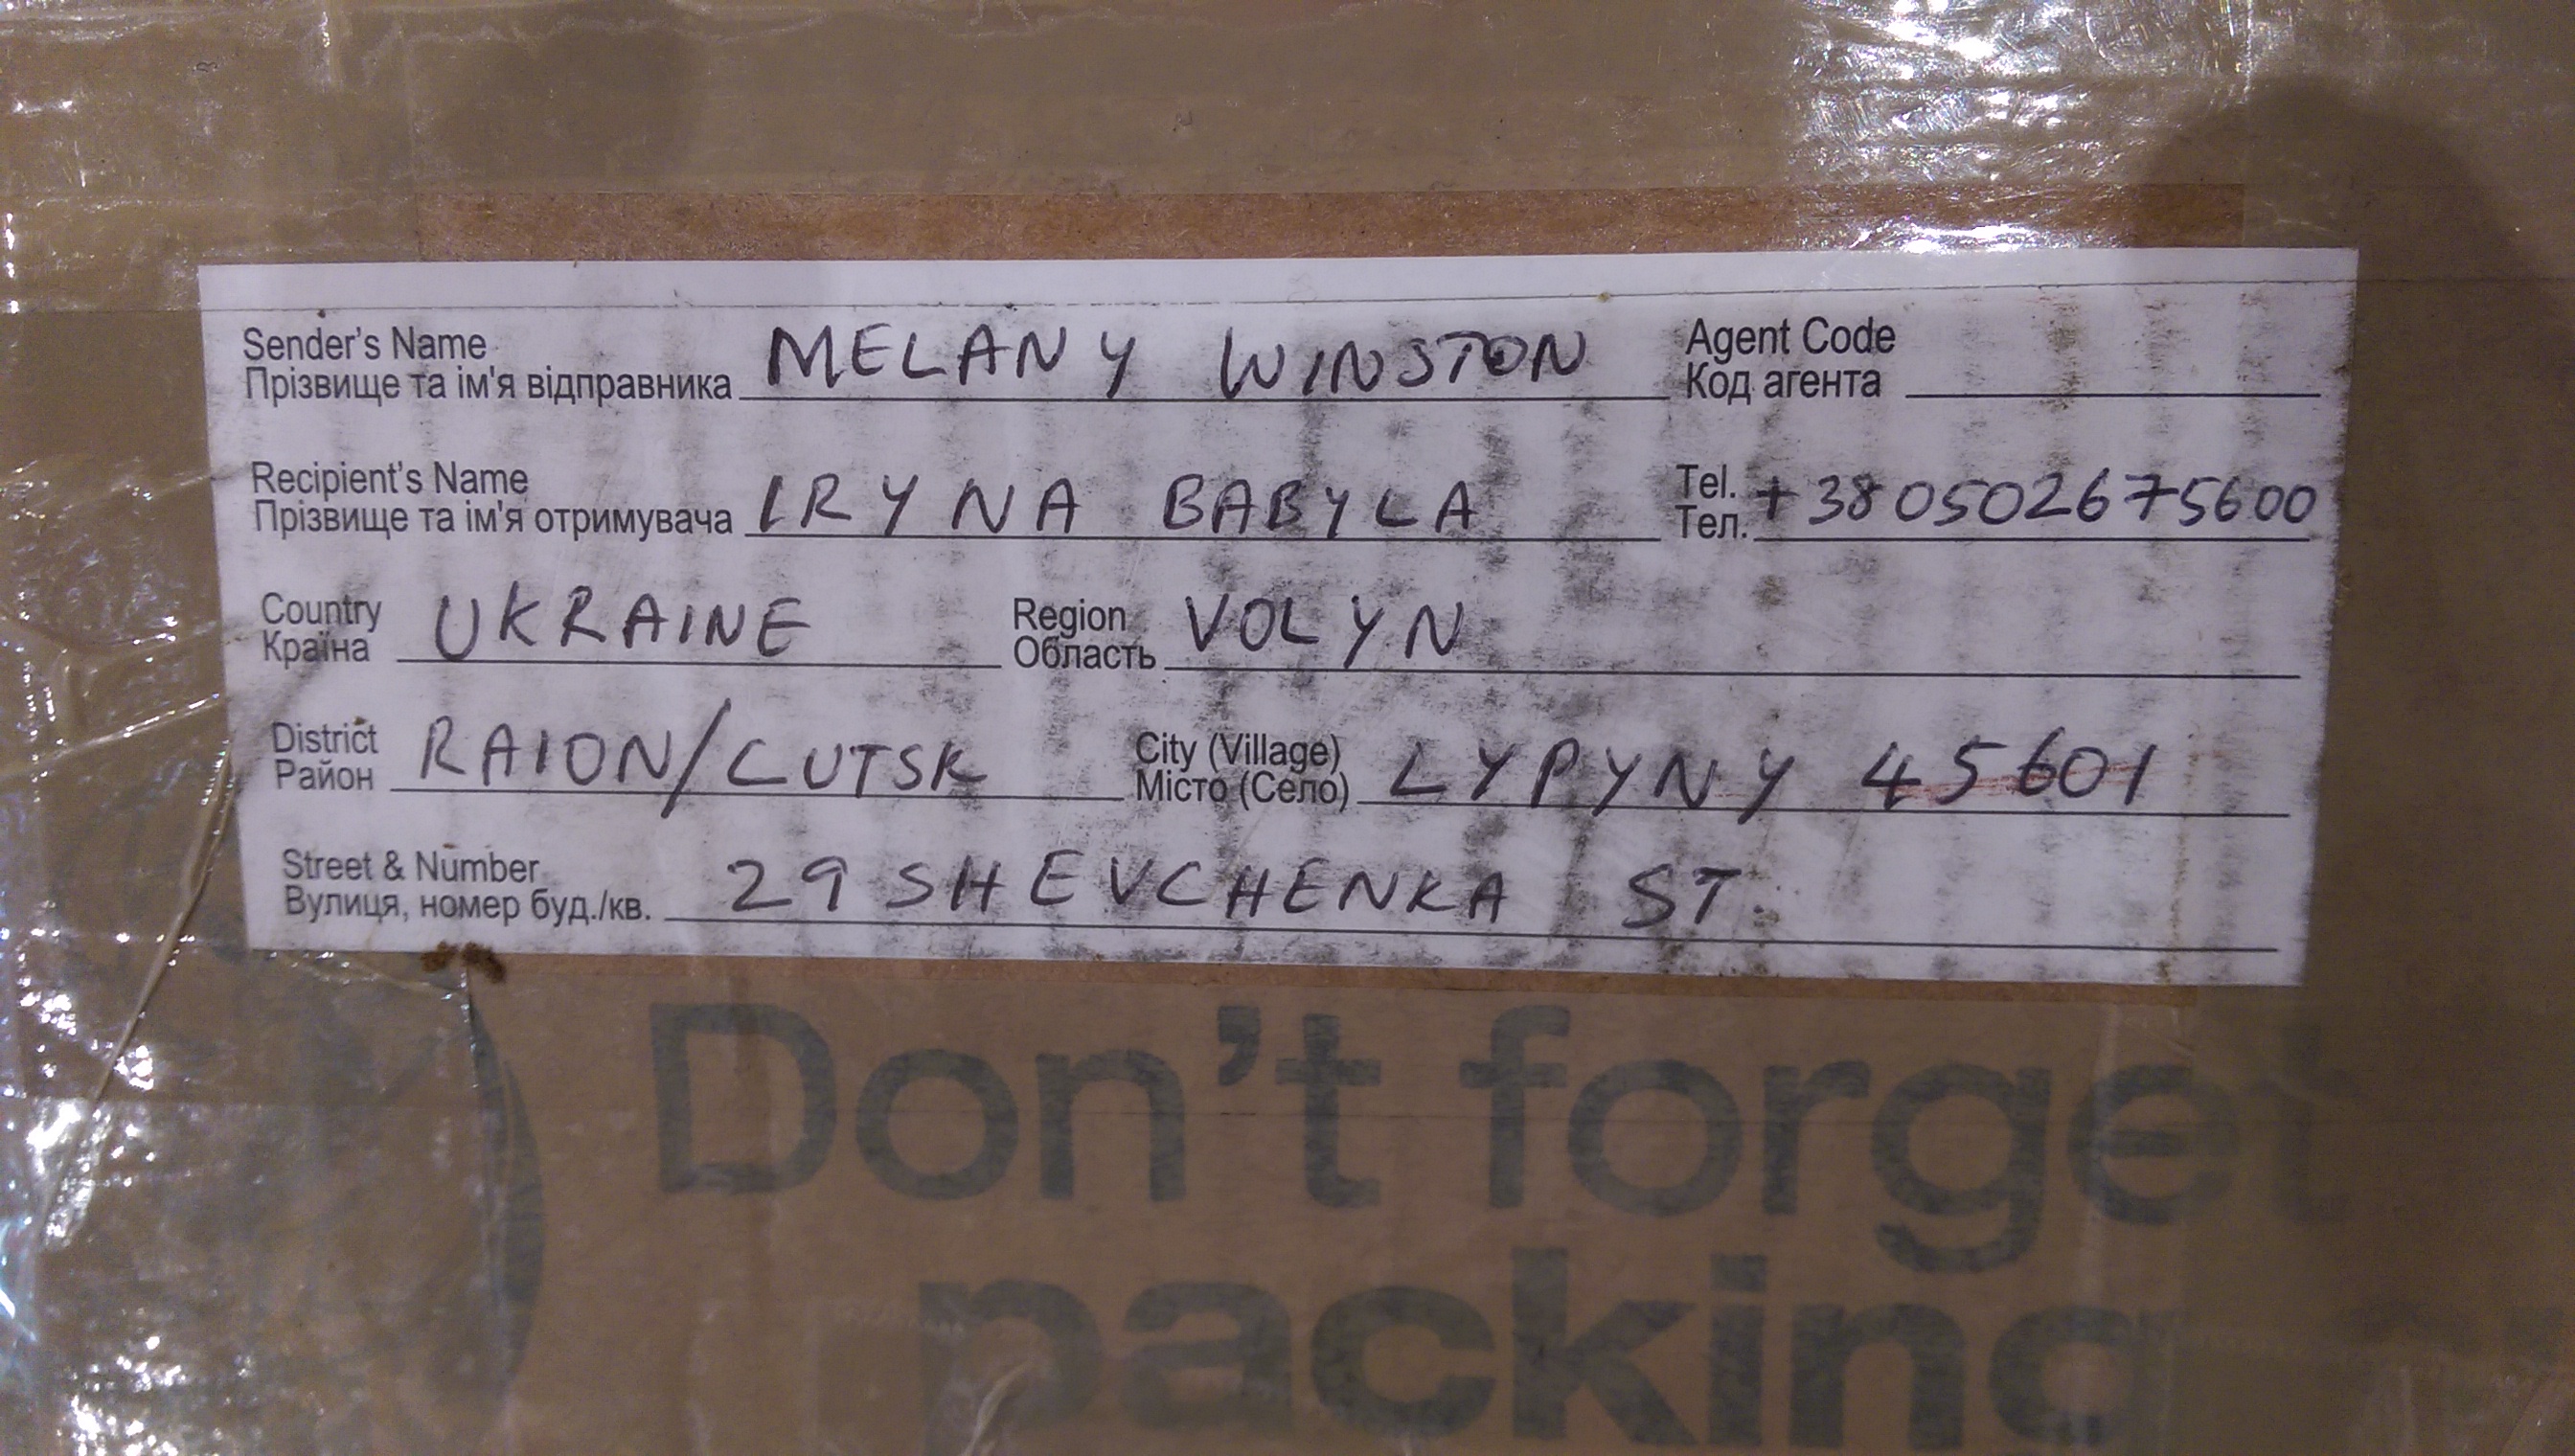 Sender's Name MELANY WINSTON Agent Code
Прізвище та ім'я відправника Код агента
Recipient's Name IRYNA BABYLA Tel. +380502675600
Прізвище та ім'я отримувача Тел.
Country UKRAINE Region VOLYN
Країна Область
District RAION/LUTSK City (Village) LYPYNY 45601
Район Місто (Село)
Street & Number 29 SHEVCHENKA ST.
Вулиця, номер буд./кв.
Don't forget
packing